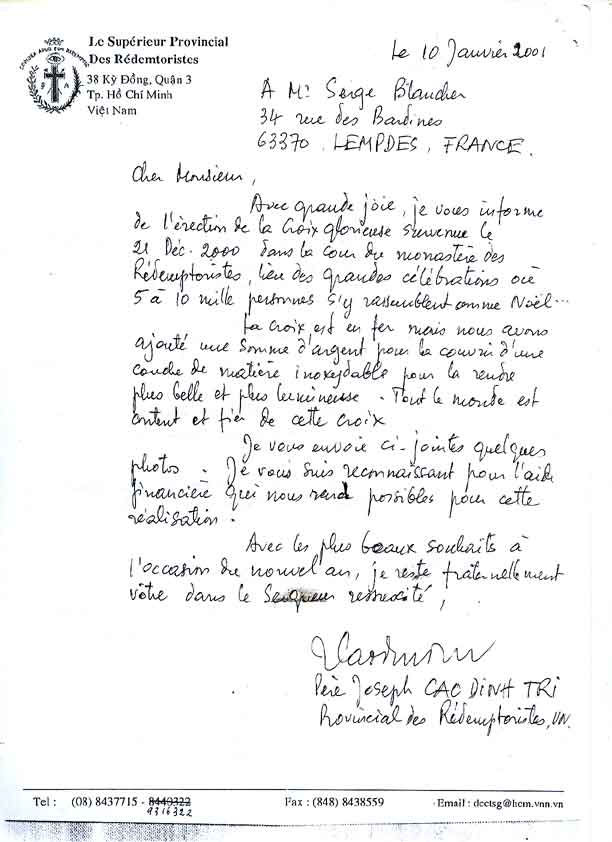 Le Supérieur Provincial
Des Rédemtoristes
38 Kỳ Đồng, Quận 3
Tp. Hồ Chí Minh
Việt Nam
Le 10 Janvier 2001
A Mr Serge Blancher
34 rue des Bardines
63370, LEMPDES, FRANCE.
Cher Monsieur,
Avec grande joie, je vous informe
de l'érection de la Croix glorieuse survenue le
21 Déc. 2000 dans la cour du monastère des
Rédemptoristes, lieu des grandes célébrations où
5 à 10 mille personnes s'y rassemblent comme Noël...
La croix est en fer mais nous avons
ajouté une somme d'argent pour la couvrir d'une
couche de matière inoxydable pour la rendre
plus belle et plus lumineuse. Tout le monde est
content et fier de cette croix
Je vous envoie ci-jointes quelques
photos. Je vous suis reconnaissant pour l'aide
financière qui nous rend possibles pour cette
réalisation.
Avec les plus beaux souhaits à
l'occasion du nouvel an, je reste fraternellement
vôtre dans le Seigneur ressuscité,
Père Joseph CAO DINH TRI
Provincial des Rédemptoristes, VN.
Tel : (08) 8437715 - 8449322
9316322
Fax : (848) 8438559
Email : dcctsg@hcm.vnn.vn